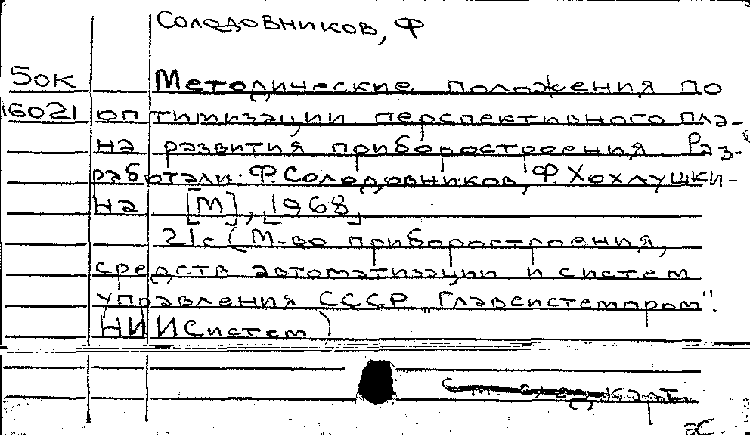 Солодовников, Ф
50к Методические положения по
16021 оптимизации перспективного пла-
на развития приборостроения Раз-
работали: Ф. Солодовников, Ф. Хохлушки-
на [М], [1968]
21с (М-во приборостроения,
средств автоматизации и систем
управления СССР „Главсистемпром".
(НИИСистем)
карт.